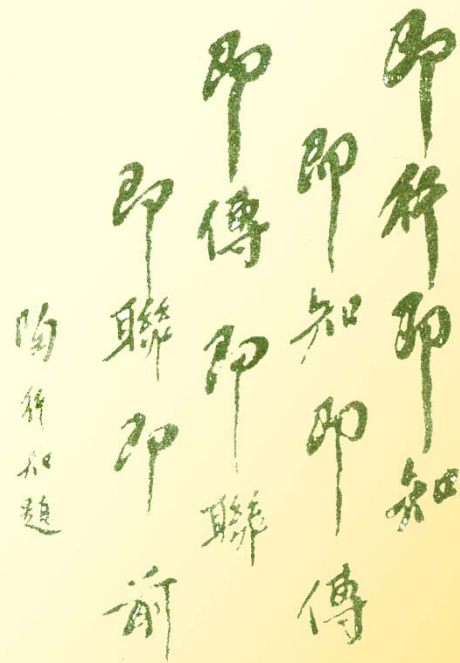 即行即知
即知即傳
即傳即聯
即聯即前
陶行知題